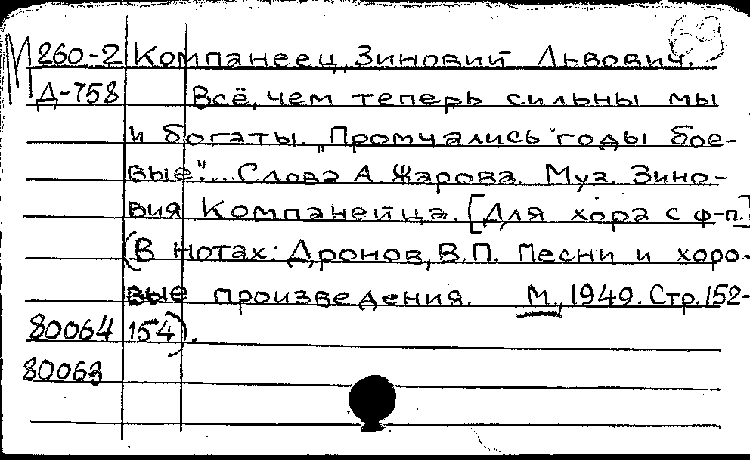 69
М 260-2 Компанеец, Зиновий Львович.
Д-758 Всё, чем теперь сильны мы
и богаты. „Промчались годы бое-
вые"... Слова А. Жарова. Муз. Зино-
вия Компанейца. [Для хора с ф-п.]
(В нотах: Дронов, В.П. Песни и хоро-
вые произведения. М., 1949. Стр. 152-
80064 154).
80063